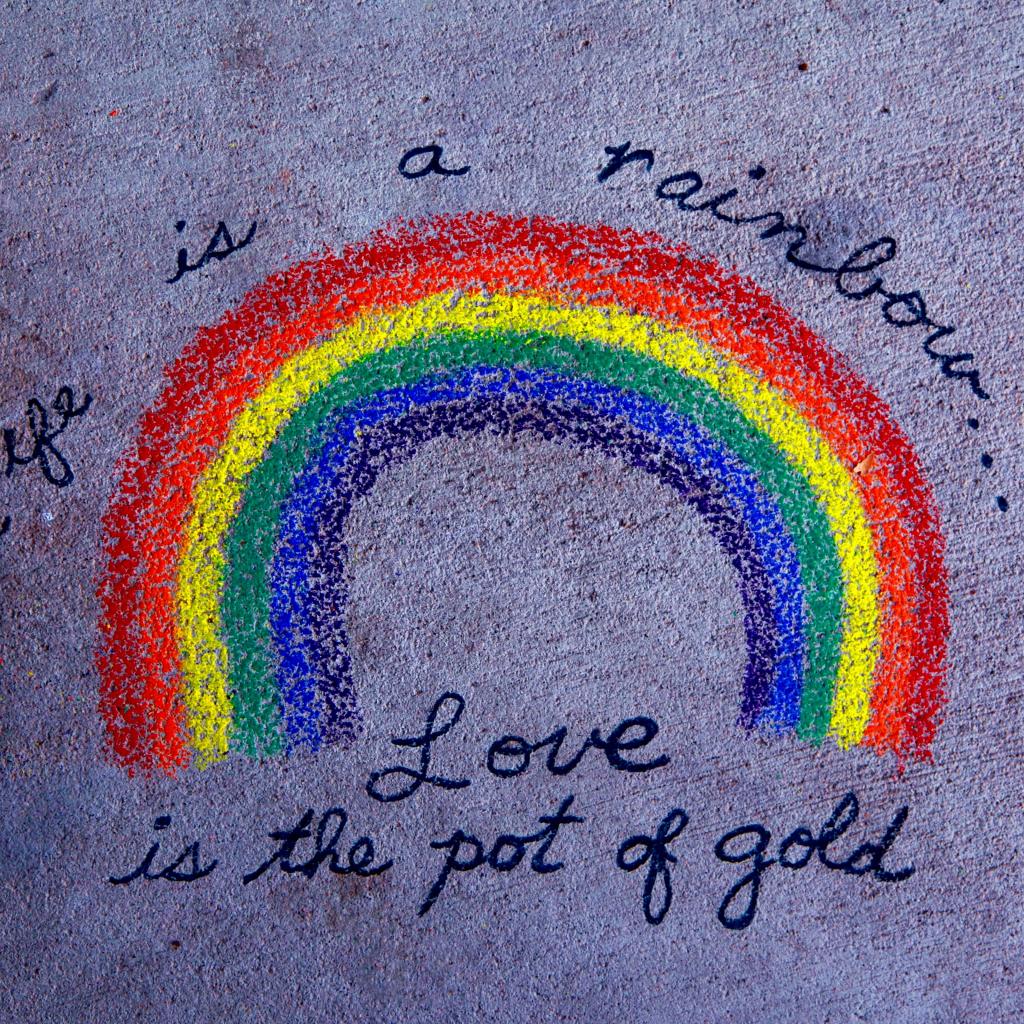 ife is a rainbow...
Love
is the pot of gold